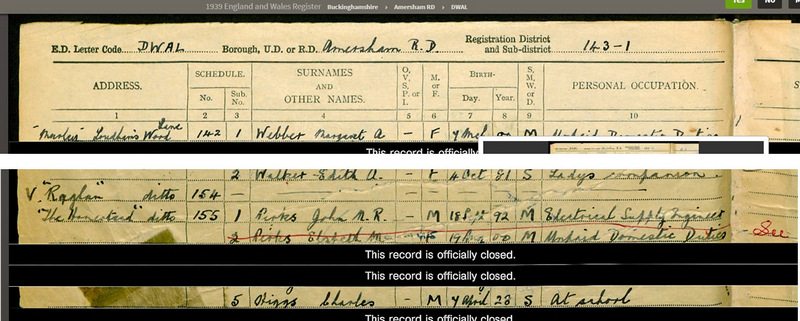 1939 England and Wales Register Buckinghamshire › Amersham RD › DWAL
Yes No
E.D. Letter Code DWAL Borough, U.D. or R.D. Amersham R.D. Registration District and Sub-district 143-1
ADDRESS. SCHEDULE. No. Sub. No. SURNAMES AND OTHER NAMES. O., V., S., P. or I. M. or F. BIRTH- Day. Year. S., M., W. or D. PERSONAL OCCUPATION.
1 2 3 4 5 6 7 8 9 10
Loudhams Wood Lane 142 1 Webber Margaret A - F 00 M Unpaid Domestic Duties
This record is officially
2 Walker Edith A. - F 4 Oct 81 S Ladys companion
V. "Raglan" ditto 154 - - - - - -
"The Homestead" ditto 155 1 Pirks John N.R. - M 18 Sept 92 M Electrical Supply Engineer
2 Pirks Elsbeth M F 19 Aug 00 M Unpaid Domestic Duties - See
This record is officially closed.
This record is officially closed.
5 Higgs Charles - M 4 April 23 S At school
This record is officially closed.